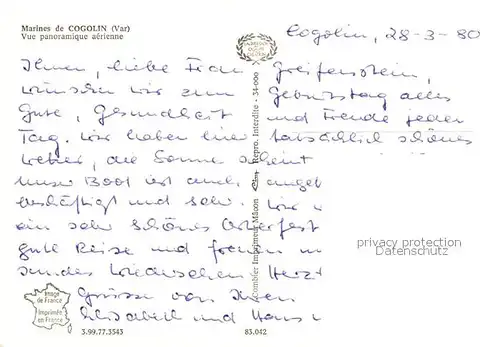 Marines de COGOLIN (Var)
Vue panoramique aérienne
Cogolin, 28-3-80
Ihnen, liebe Frau Greifenstein,
wünschen wir zum Geburtstag alles
Gute, Gesundheit und Freude jeden
Tag. Wir haben hier tatsächlich schönes
Wetter, die Sonne scheint
unser Boot ist auch
beschäftigt und sehr. Wir
ein sehr schönes Osterfest
gute Reise und freuen
Wiedersehen Herz
Grüsse von Ihren
Elisabeth und Hans
Combier Imprimeur Mâcon Cim Repro. Interdite - 34-000
privacy protection
Datenschutz
Image de France
Imprimée en France
3.99.77.3543
83.042